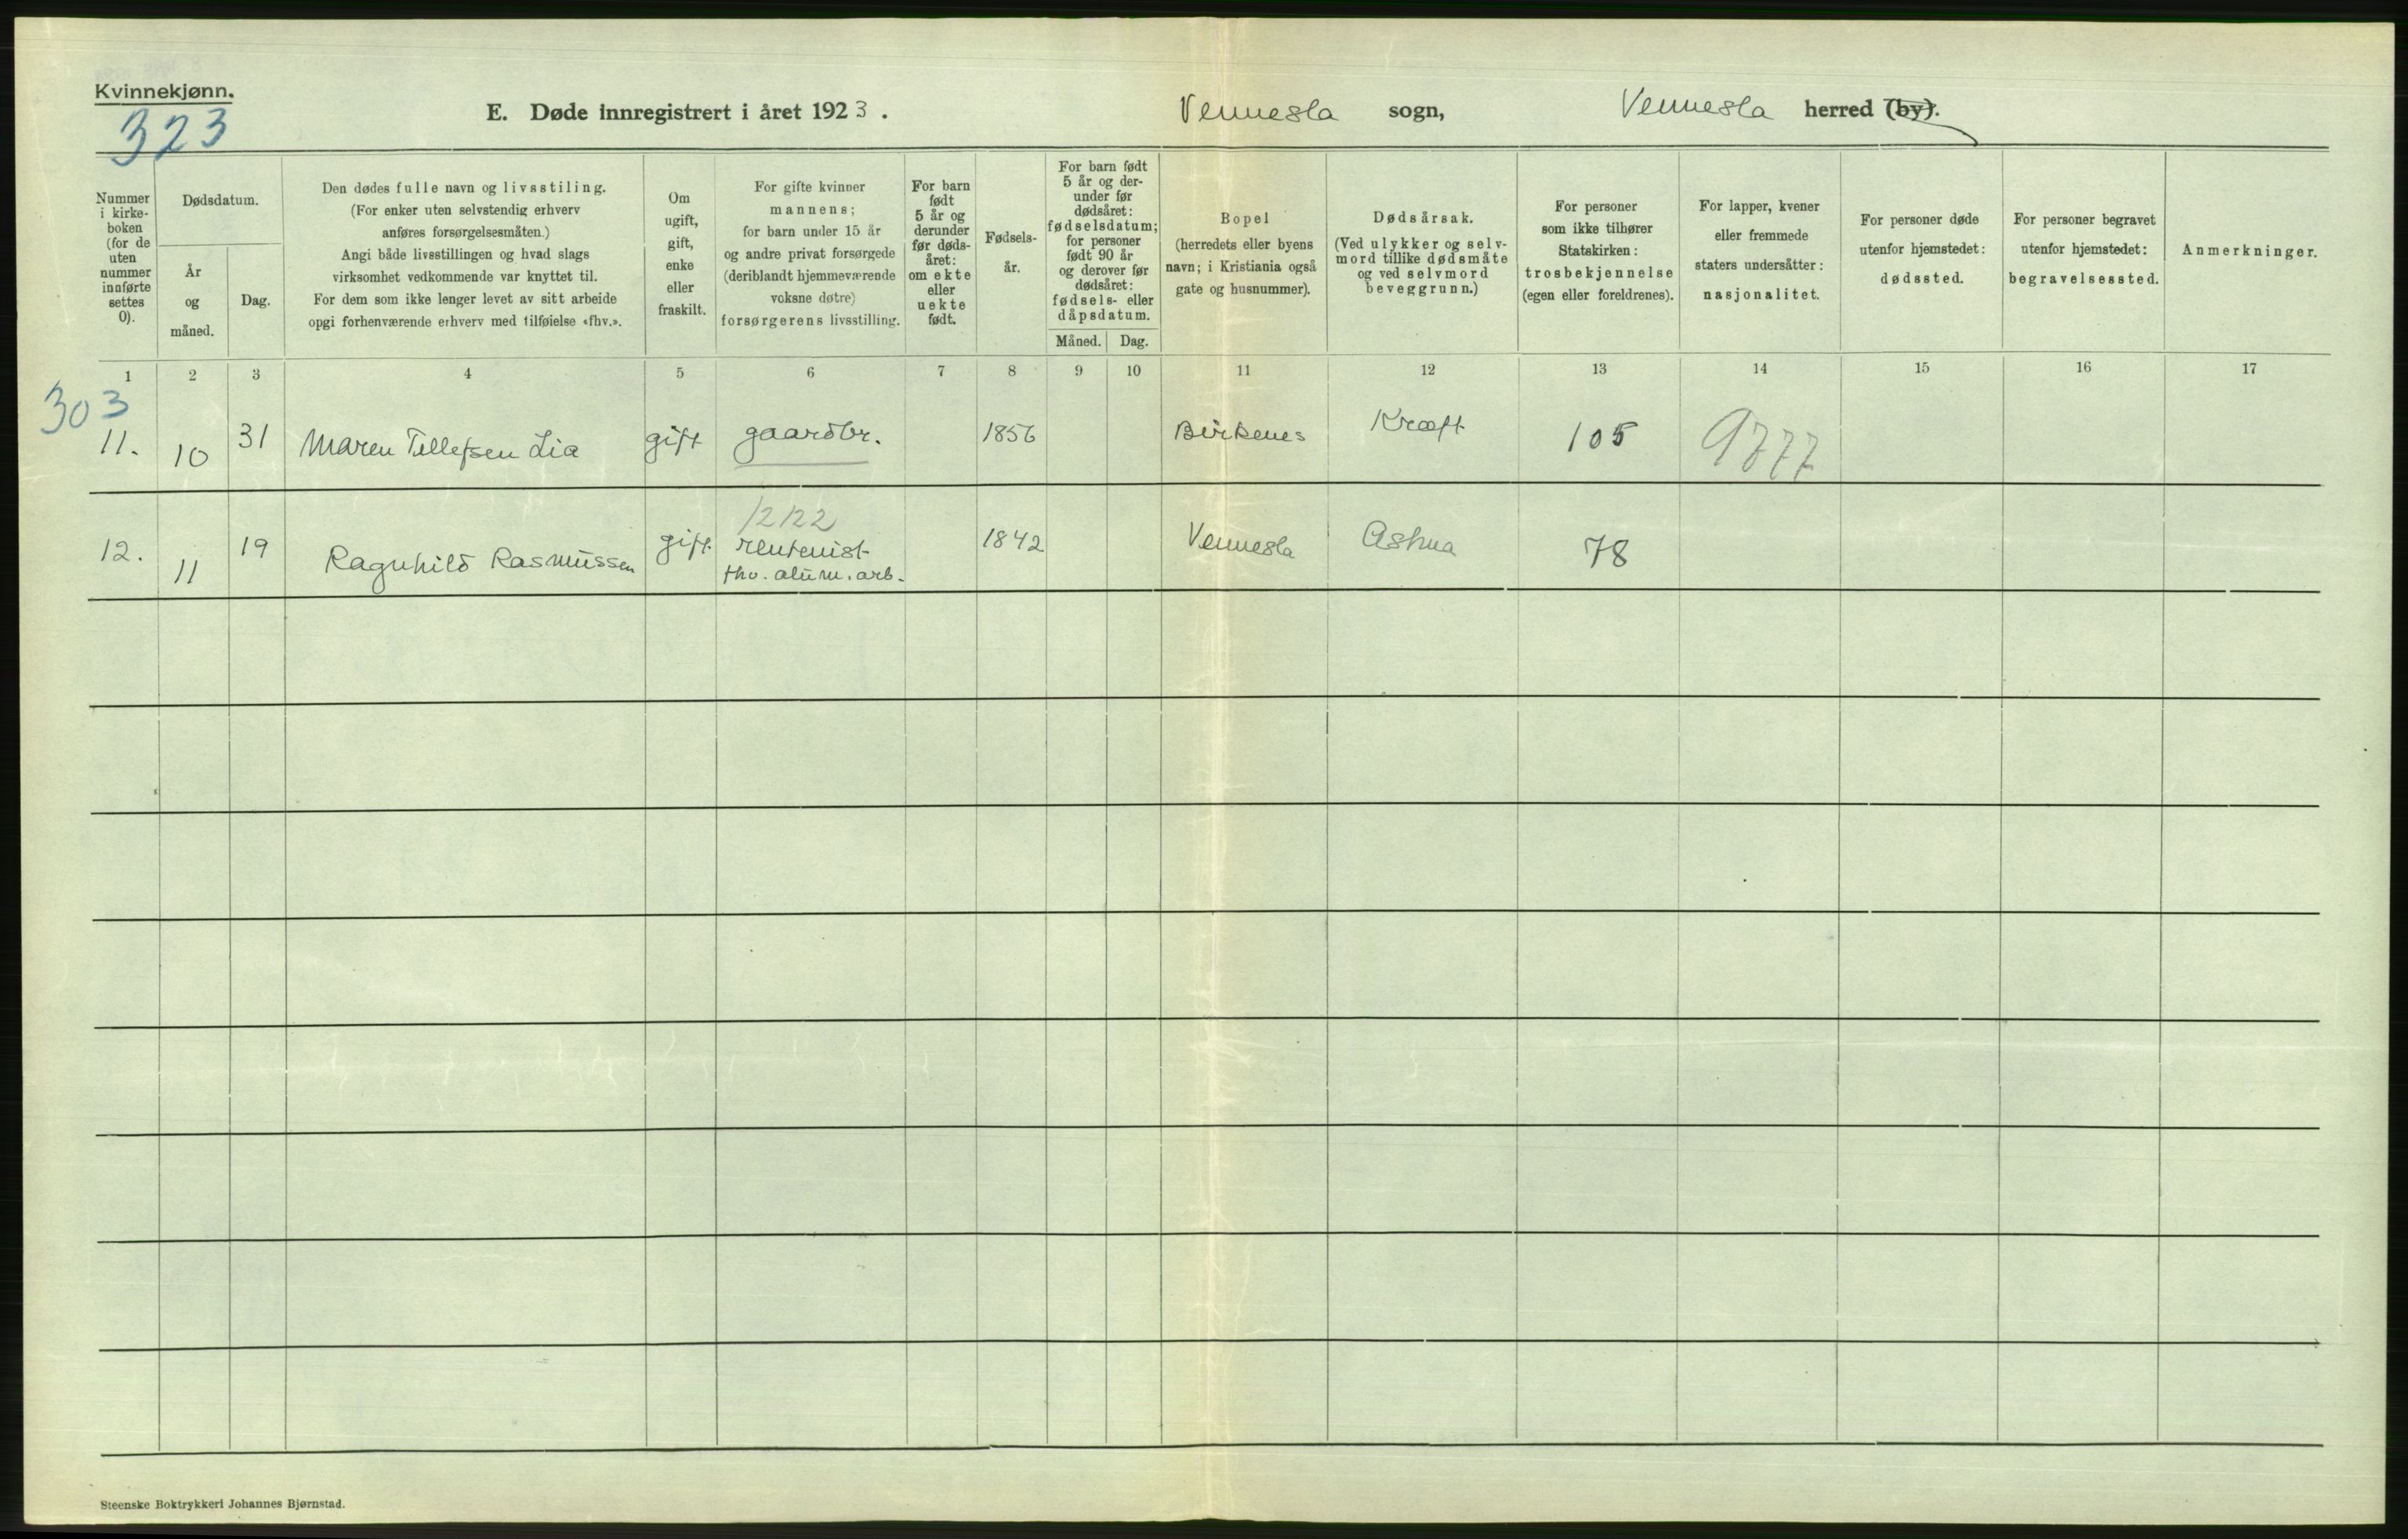 Kvinnekjønn.
323
E. Døde innregistrert i året 1923.
Vennesla sogn,
Vennesla herred (by).
Nummer
i kirke-
boken
(for de
uten
nummer
innførte
settes
0).
Dødsdatum.
År
og
måned.
Dag.
Den dødes fulle navn og livsstiling.
(For enker uten selvstendig erhverv
anføres forsørgelsesmåten.)
Angi både livsstillingen og hvad slags
virksomhet vedkommende var knyttet til.
For dem som ikke lenger levet av sitt arbeide
opgi forhenværende erhverv med tilføielse «fhv.».
Om
ugift,
gift,
enke
eller
fraskilt.
For gifte kvinner
mannens;
for barn under 15 år
og andre privat forsørgede
(deriblandt hjemmeværende
voksne døtre)
forsørgerens livsstilling.
For barn
født
5 år og
derunder
før døds-
året:
om ekte
eller
uekte
født.
Fødsels-
år.
For barn født
5 år og der-
under før
dødsåret:
fødselsdatum;
for personer
født 90 år
og derover før
dødsåret:
fødsels- eller
dåpsdatum.
Måned.
Dag.
Bopel
(herredets eller byens
navn; i Kristiania også
gate og husnummer).
Dødsårsak.
(Ved ulykker og selv-
mord tillike dødsmåte
og ved selvmord
beveggrunn.)
For personer
som ikke tilhører
Statskirken:
trosbekjennelse
(egen eller foreldrenes).
For lapper, kvener
eller fremmede
staters undersåtter:
nasjonalitet.
For personer døde
utenfor hjemstedet:
dødssted.
For personer begravet
utenfor hjemstedet:
begravelsessted.
Anmerkninger.
1 2 3 4 5 6 7 8 9 10 11 12 13 14 15 16 17
303
11. 10 31 Maren Tellefsen Lia gift gaardbr. 1856 Birkenes Kræft 105 9777
1212
12. 11 19 Ragnhild Rasmussen gift rentenist 1842 Vennesla Asthma 78
fhv. alum. arb.
Steenske Boktrykkeri Johannes Bjørnstad.